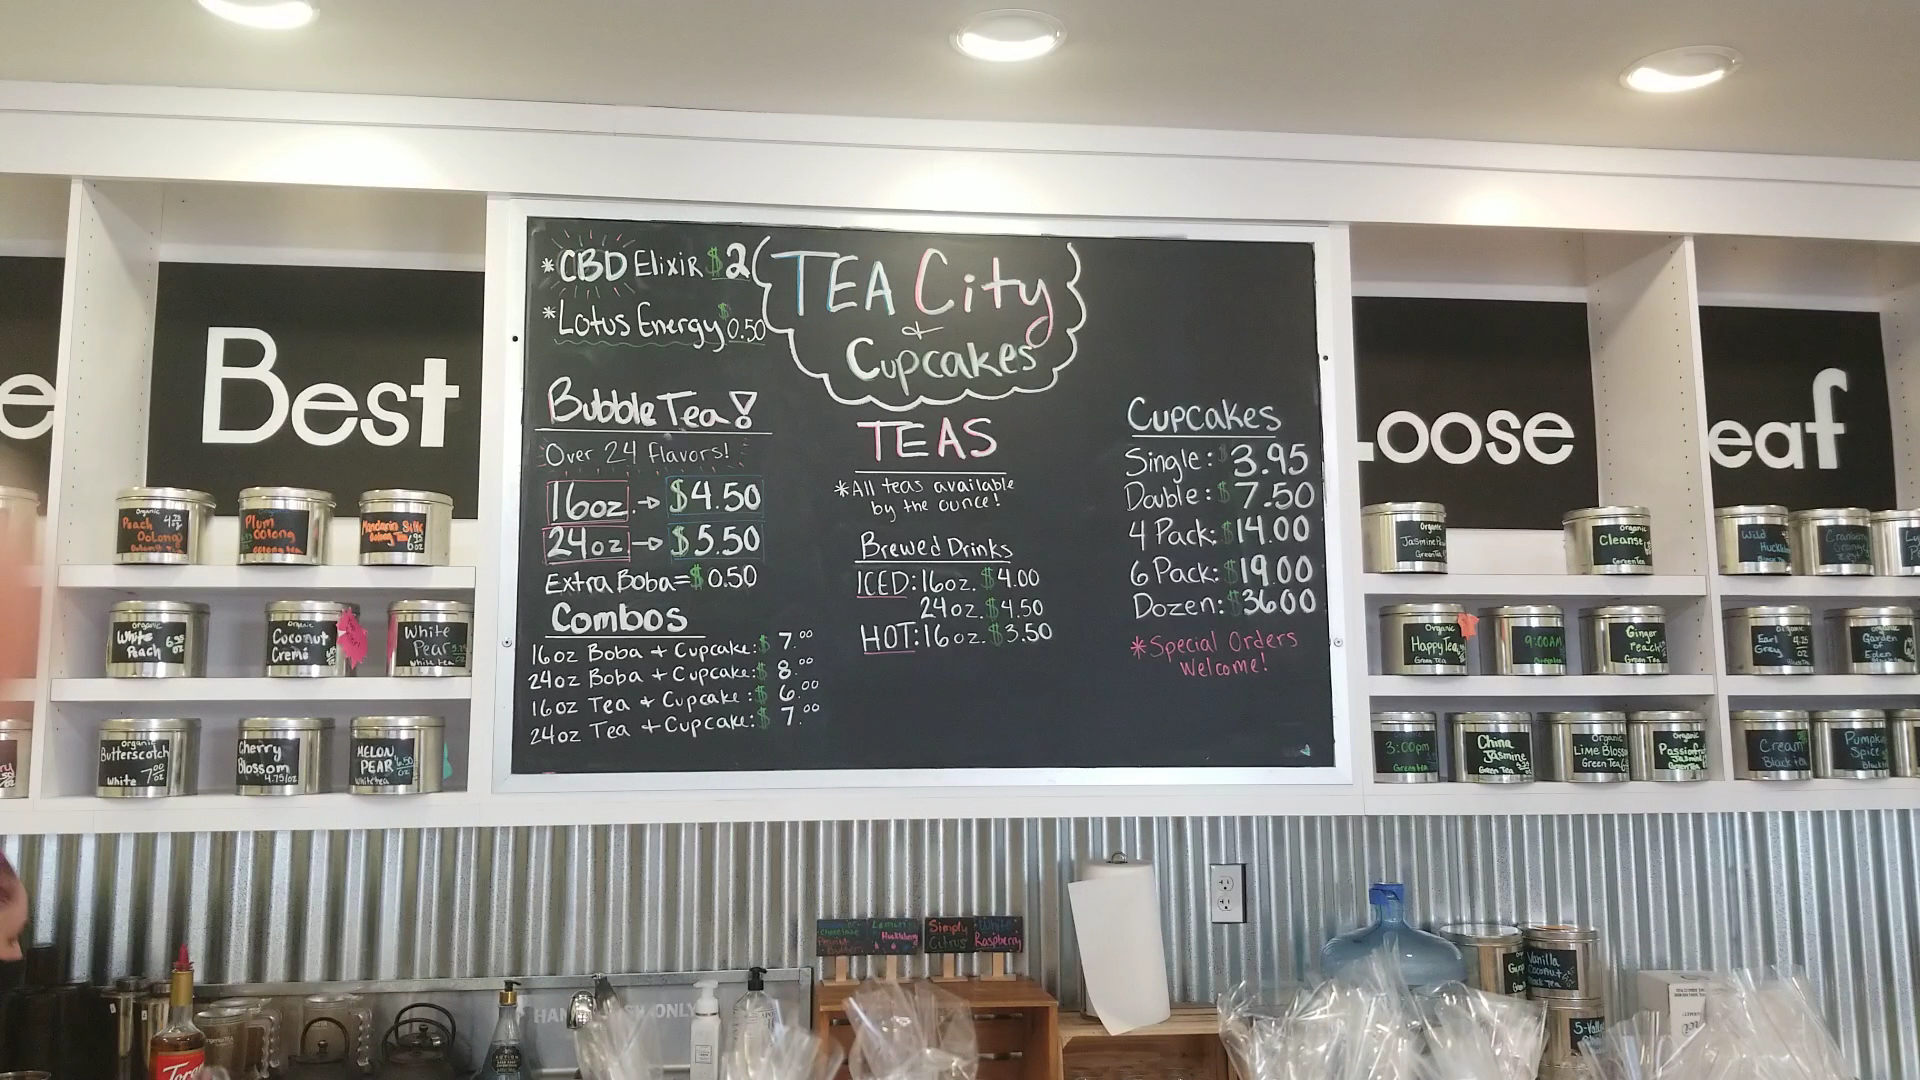 e Best Loose eaf
*CBD Elixir $2
*Lotus Energy $0.50
TEA City
&
Cupcakes
Bubble Tea!
Over 24 flavors!
16oz. → $4.50
24oz. → $5.50
Extra Boba = $0.50
Combos
16oz Boba + Cupcake: $7.00
24oz Boba + Cupcake: $8.00
16oz Tea + Cupcake: $6.00
24oz Tea + Cupcake: $7.00
TEAS
*All teas available
by the ounce!
Brewed Drinks
ICED: 16oz. $4.00
24oz. $4.50
HOT: 16oz. $3.50
Cupcakes
Single: $3.95
Double: $7.50
4 Pack: $14.00
6 Pack: $19.00
Dozen: $36.00
*Special Orders
Welcome!
Organic
Peach
Oolong
Organic
Plum
Oolong
oolong tea
Mandarin Silk
Organic
White
Peach
Organic
Coconut
Cremé
White
Pear
White tea
Organic
Butterscotch
White 7.00 oz
Cherry
Blossom
4.75/oz
MELON
PEAR
White tea
Organic
Jasmine
Green Tea
Organic
Cleanse
Green Tea
Wild
Organic
Happy Tea
Green Tea
9:00AM
Organic
Ginger
Peach
Green Tea
Organic
Earl
Grey
Organic
Garden
of
Eden
3:00pm
Green tea
China
Jasmine
Green Tea
Organic
Lime Blossom
Green Tea
Organic
Jasmine
Green Tea
Cream
Black tea
Pumpkin
Spice
Black
Lemon
Huckleberry
Simply
Citrus
White
Raspberry
Vanilla
Coconut
Black Tea
HAND ONLY